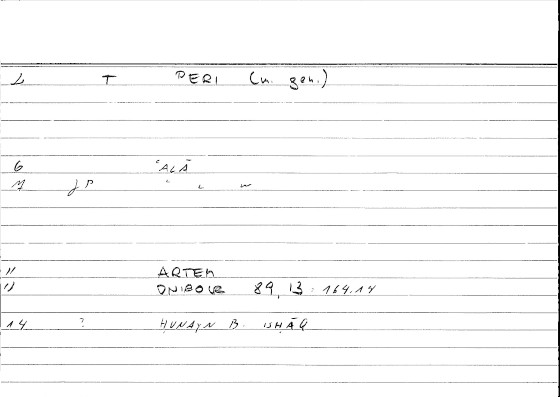 L T PERI (n. gen.)
6 ʿALĀ
M JP " " "
11 ARTEM
13 89, 13 : 164.14
14 ? ḤUNAYN B. ISḤĀQ